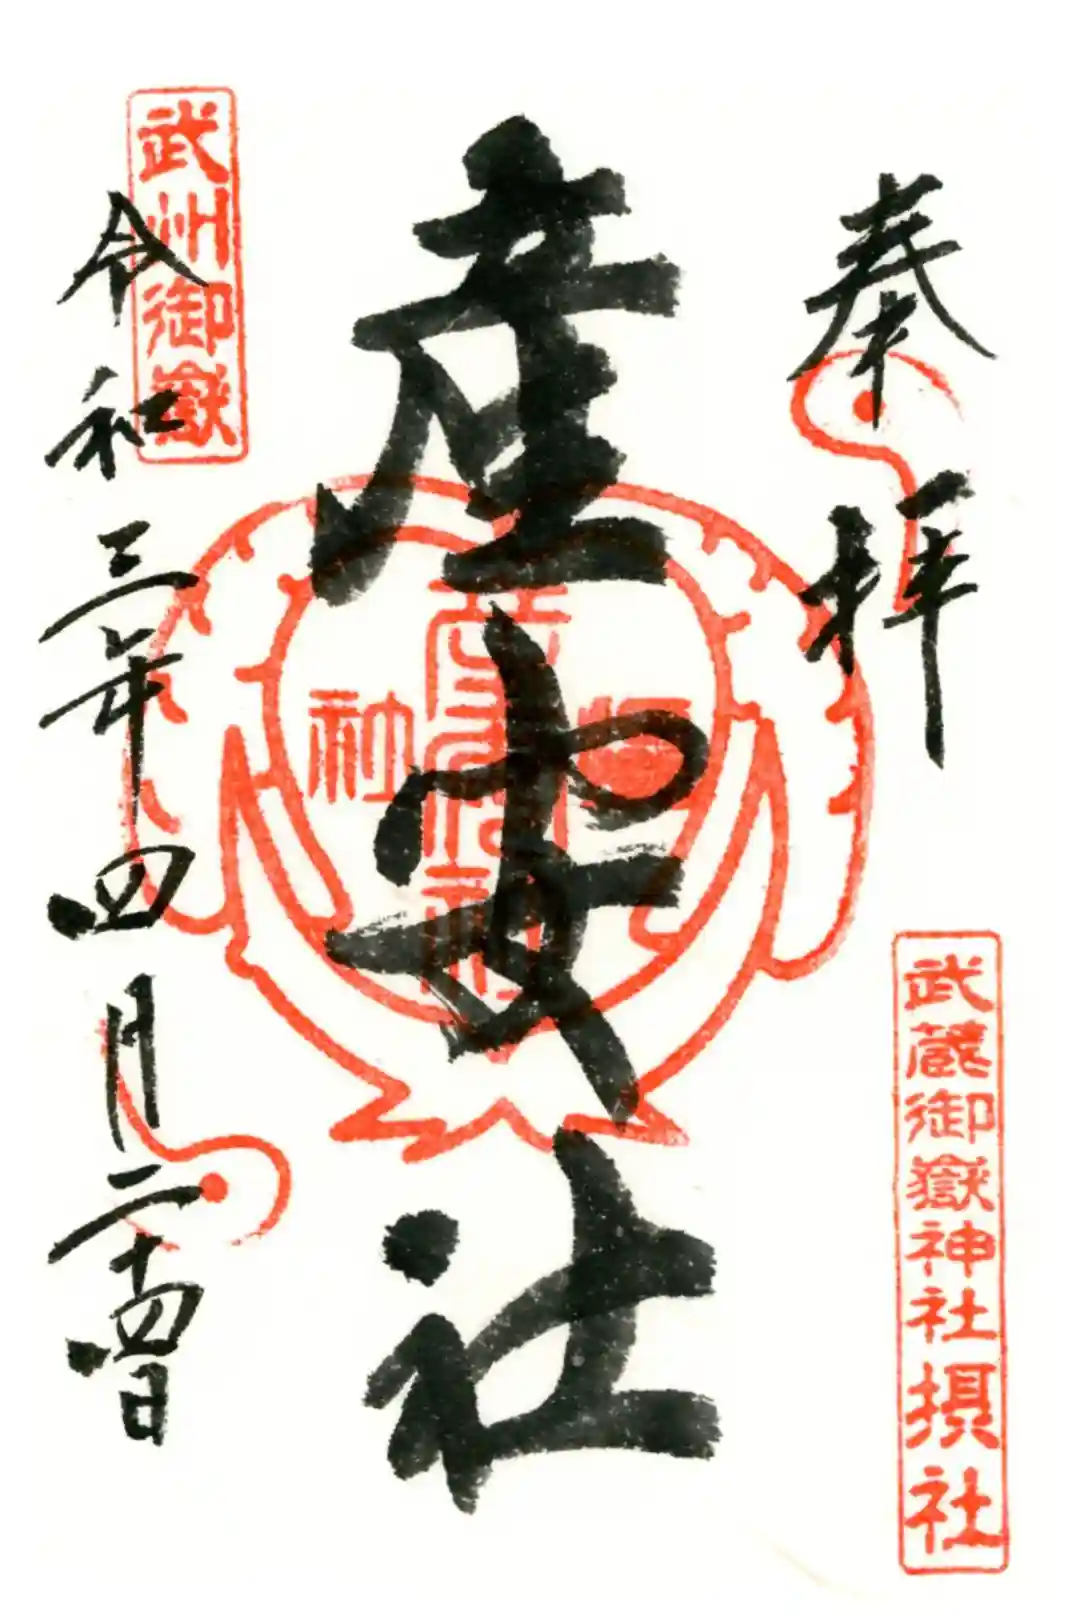 奉拝
武蔵御嶽神社摂社
産安社
武州御嶽
令和三年四月二十四日